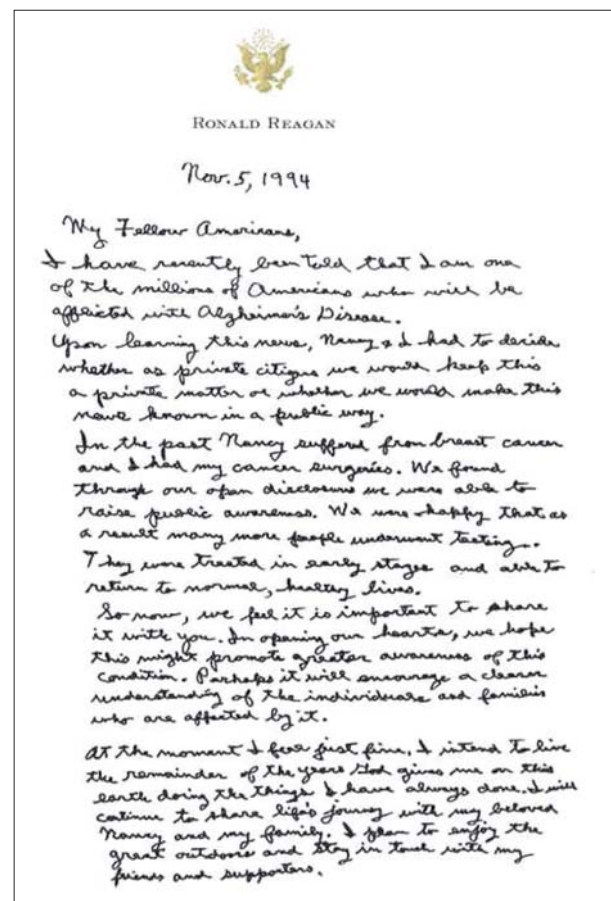 RONALD REAGAN
Nov. 5, 1994
My Fellow Americans,
I have recently been told that I am one
of the millions of Americans who will be
afflicted with Alzheimer's Disease.
Upon learning this news, Nancy & I had to decide
whether as private citizens we would keep this
a private matter or whether we would make this
news known in a public way.
In the past Nancy suffered from breast cancer
and I had my cancer surgeries. We found
through our open disclosures we were able to
raise public awareness. We were happy that as
a result many more people underwent testing.
They were treated in early stages and able to
return to normal, healthy lives.
So now, we feel it is important to share
it with you. In opening our hearts, we hope
this might promote greater awareness of this
condition. Perhaps it will encourage a clearer
understanding of the individuals and families
who are affected by it.
At the moment I feel just fine. I intend to live
the remainder of the years God gives me on this
earth doing the things I have always done. I will
continue to share life's journey with my beloved
Nancy and my family. I plan to enjoy the
great outdoors and stay in touch with my
friends and supporters.